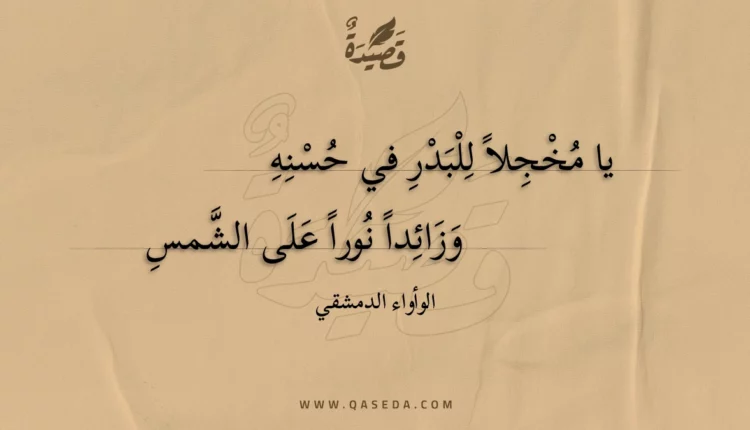 قَصِيدَةٌ
يا مُخْجِلاً لِلْبَدْرِ في حُسْنِهِ
وَزَائِداً نُوراً عَلَى الشَّمسِ
الوأواء الدمشقي
WWW.QASEDA.COM